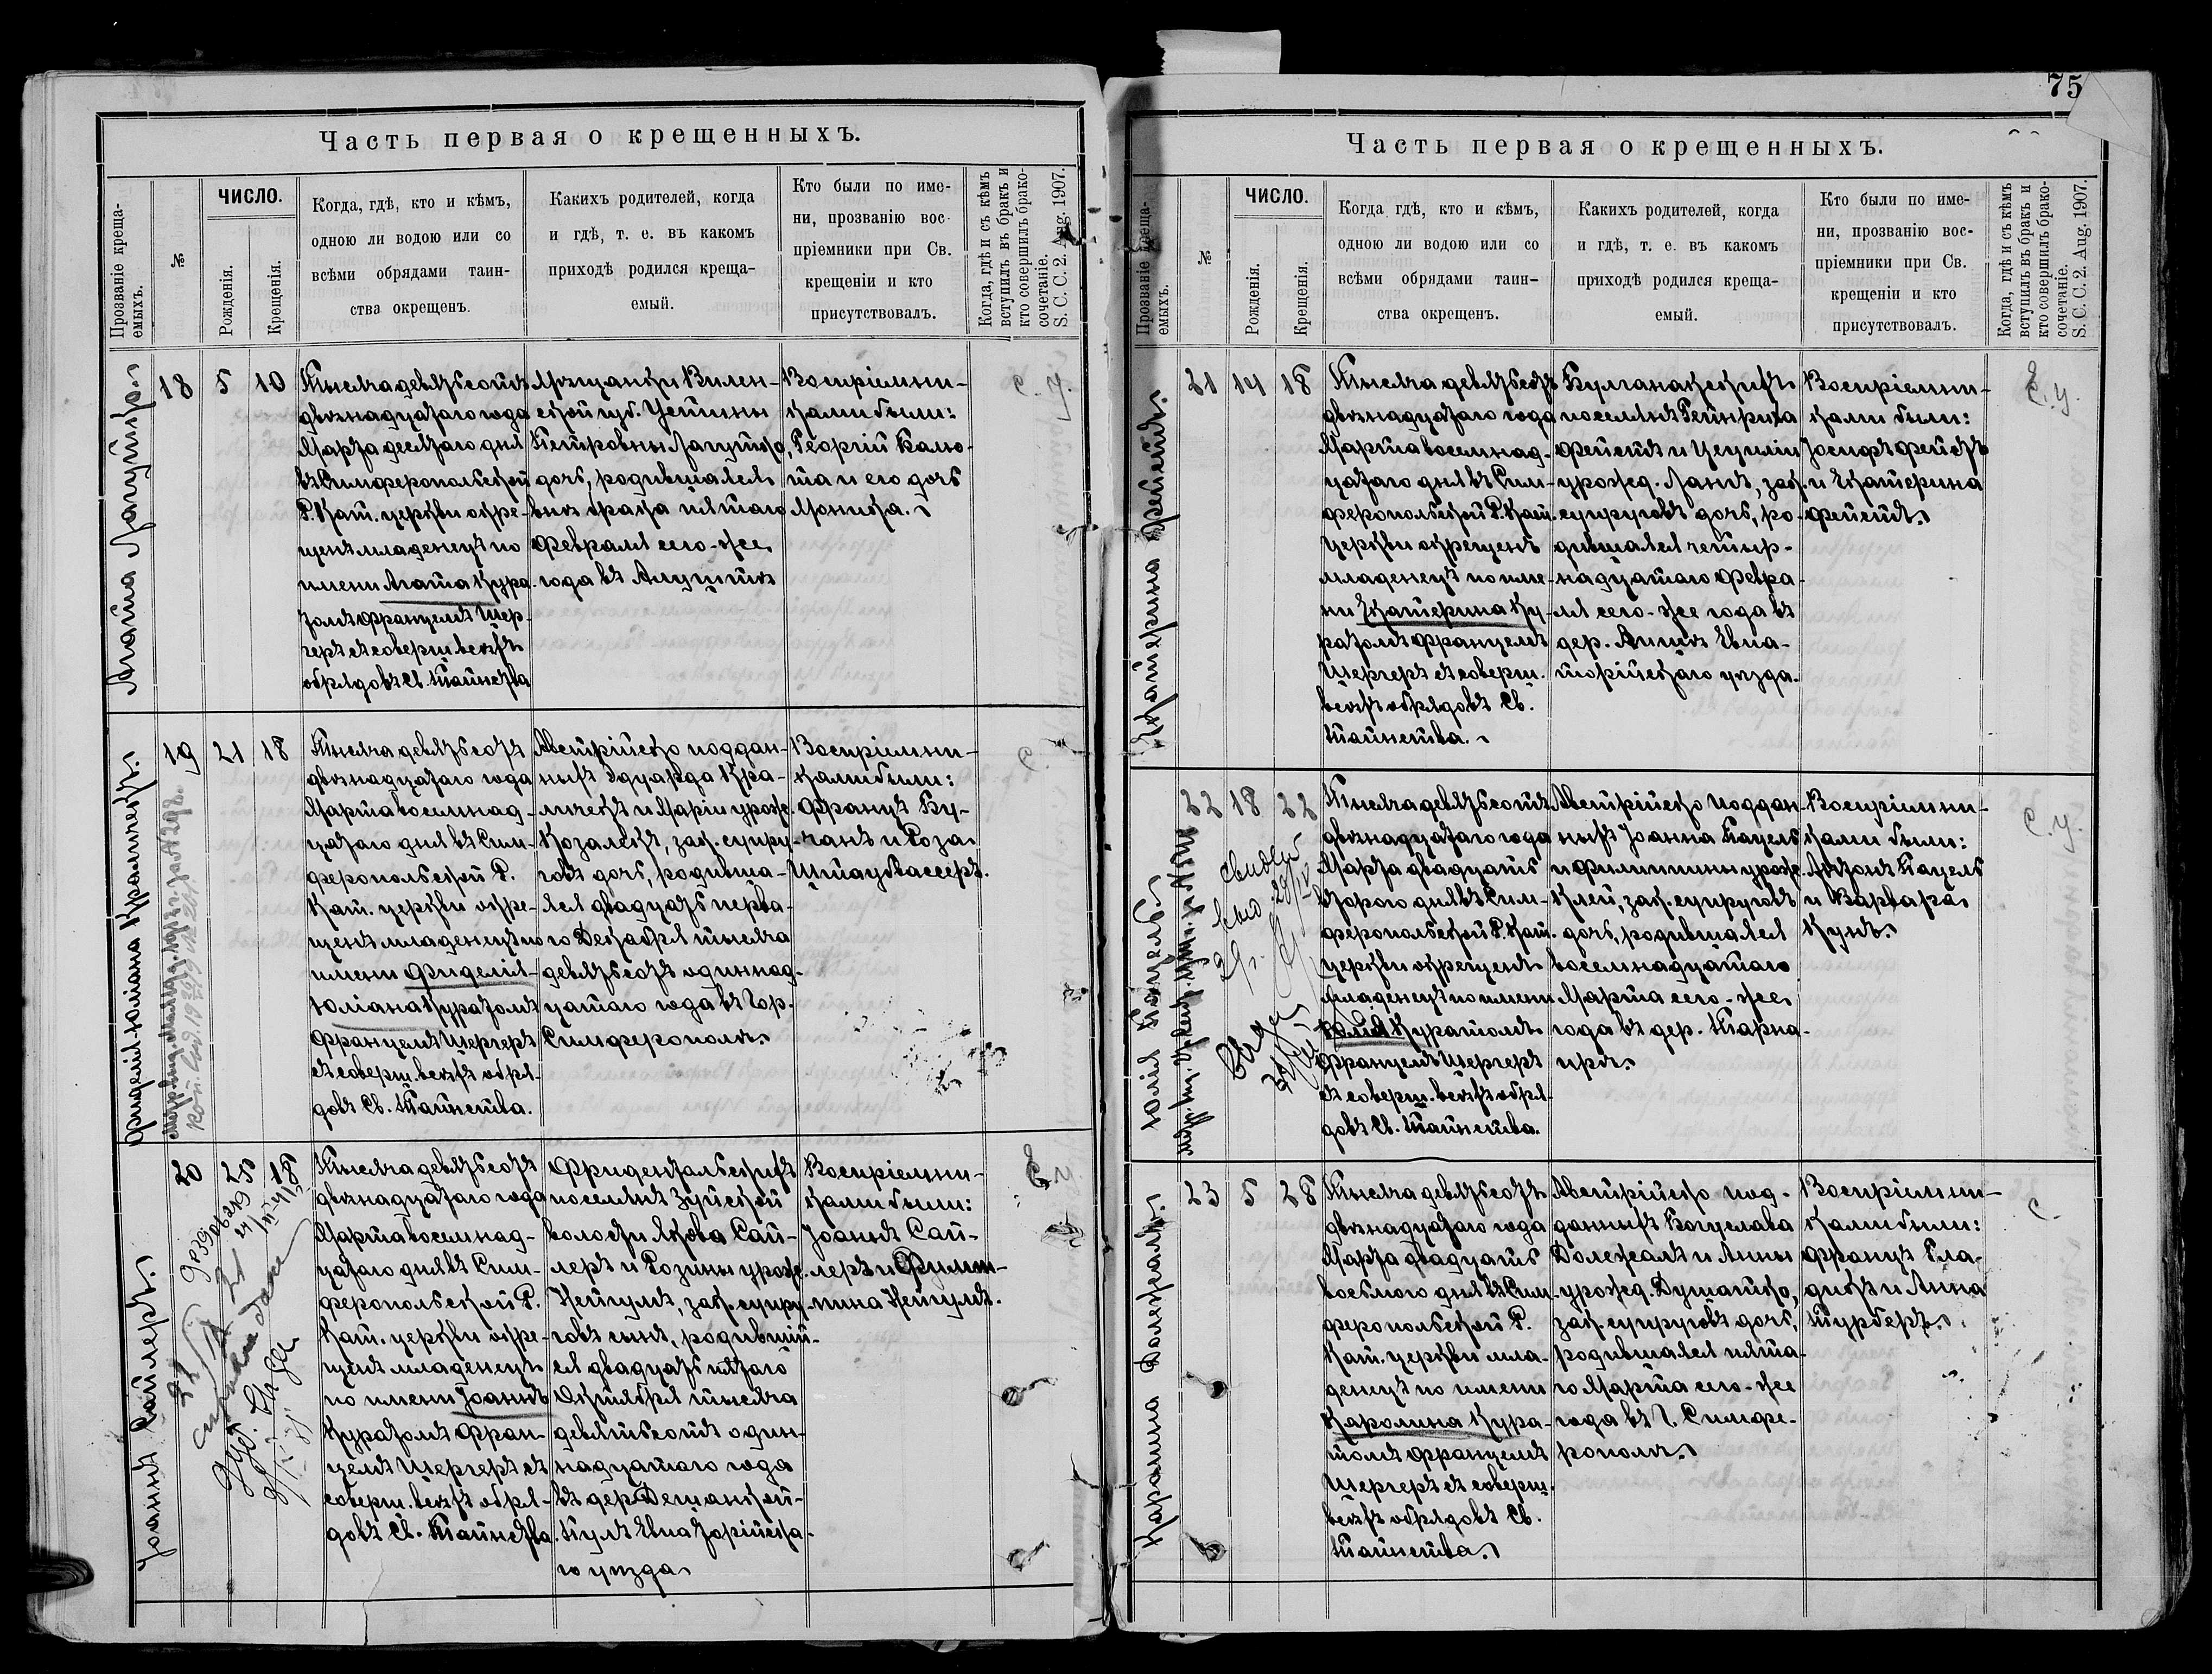 75
Часть первая о крещенныхъ.
Прозваніе креща-
емыхъ.
№
ЧИСЛО.
Рожденія.
Крещенія.
Когда, гдѣ, кто и кѣмъ,
одною ли водою или со
всѣми обрядами таин-
ства окрещенъ.
Какихъ родителей, когда
и гдѣ, т. е. въ какомъ
приходѣ родился креща-
емый.
Кто были по име-
ни, прозванію вос-
пріемники при Св.
крещеніи и кто
присутствовалъ.
Когда, гдѣ и съ кѣмъ
вступилъ въ бракъ и
кто совершилъ брако-
сочетаніе.
S. C. C. 2. Aug. 1907.
Агата Лагутко
18
5
10
Тысяча девятьсотъ
двѣнадцатаго года
Марта десятаго дня
въ Симферопольской
Р. Кат. церкви окре-
щенъ младенецъ по
имени Агата Кура-
томъ Францемъ Шер-
геръ съ соверш. всѣхъ
обрядовъ Св. Таинства
Мѣщанки Вилен-
ской губ. Устины
Петровны Лагутко,
дочь, родившаяся
внѣ брака пятаго
Февраля сего-же
года въ Алуштѣ
Воспріемни-
ками были:
Георгій Балю-
та и его дочь
Моника.
С. У.
Фиделія-Юліана Краличекъ.
19
21
18
Тысяча девятьсотъ
двѣнадцатаго года
Марта восемнад-
цатаго дня въ Сим-
феропольской Р.
Кат. церкви окре-
щенъ младенецъ по
имени Фиделія-
Юліана Куратомъ
Францемъ Шергеръ
съ соверш. всѣхъ обря-
довъ Св. Таинства.
Австрійско поддан-
ныхъ Эдуарда Кра-
личекъ и Маріи урожд.
Козалекъ, зак. супру-
говъ дочь, родивша-
яся двадцать перва-
го Декабря тысяча
девятьсотъ одиннад-
цатаго года въ гор.
Симферополѣ.
Воспріемни-
ками были:
Францъ Бу-
чанъ и Роза
Штаубвассеръ.
С.
Іоаннъ Сайлеръ.
20
25
18
Тысяча девятьсотъ
двѣнадцатаго года
Марта восемнад-
цатаго дня въ Сим-
феропольской Р.
Кат. церкви окре-
щенъ младенецъ
по имени Іоаннъ
Куратомъ Фран-
цемъ Шергеръ съ
соверш. всѣхъ обря-
довъ Св. Таинства
Фридентальскихъ
поселянъ Зуйской
волости Якова Сай-
леръ и Розины урожд.
Нейгумъ, зак. супру-
говъ сынъ, родившій-
ся двадцать пятаго
Октября тысяча
девятьсотъ один-
надцатаго года
въ дер.
Евпаторійска-
го уѣзда
Воспріемни-
ками были:
Іоаннъ Сай-
леръ и Филип-
пина Нейгумъ.
С. У.
Часть первая о крещенныхъ.
Прозваніе креща-
емыхъ.
№
ЧИСЛО.
Рожденія.
Крещенія.
Когда гдѣ, кто и кѣмъ,
одною ли водою или со
всѣми обрядами таин-
ства окрещенъ.
Какихъ родителей, когда
и гдѣ, т. е. въ какомъ
приходѣ родился креща-
емый.
Кто были по име-
ни, прозванію вос-
пріемники при Св.
крещеніи и кто
присутствовалъ.
Когда, гдѣ и съ кѣмъ
вступилъ въ бракъ и
кто совершилъ брако-
сочетаніе.
S. C. C. 2. Aug. 1907.
Екатерина Фейстъ.
21
14
18
Тысяча девятьсотъ
двѣнадцатаго года
Марта восемнад-
цатаго дня въ Сим-
феропольской Р. Кат.
церкви окрещенъ
младенецъ по име-
ни Екатерина Ку-
ратомъ Францемъ
Шергеръ съ соверш.
всѣхъ обрядовъ Св.
Таинства.
Булганакскихъ
поселянъ Гейнриха
Фейстъ и Цециліи
урожд. Лангъ, зак.
супруговъ дочь, ро-
дившаяся четыр-
надцатаго Февра-
ля сего-же года въ
дер. Евпа-
торійскаго уѣзда.
Воспріемни-
ками были:
Іосифъ Фейстъ
и Екатерина
Фейстъ.
С. У.
Юлія Кацель
22
18
22
Тысяча девятьсотъ
двѣнадцатаго года
Марта двадцать
втораго дня въ Сим-
феропольской Р. Кат.
церкви окрещенъ
младенецъ по имени
Юлія Куратомъ
Францемъ Шергеръ
съ соверш. всѣхъ обря-
довъ Св. Таинства.
Австрійско поддан-
ныхъ Іоанна Кацель
и Филипины урожд.
Клей, зак. супруговъ
дочь, родившаяся
восемнадцатаго
Марта сего-же
года въ дер. Тарна-
ирѣ.
Воспріемни-
ками были:
Антонъ Кацель
и Варвара
Кунъ.
С. У.
Каролина Долежалъ.
23
5
28
Тысяча девятьсотъ
двѣнадцатаго года
Марта двадцать
восьмого дня въ Сим-
феропольской Р.
Кат. церкви мла-
денецъ по имени
Каролина Кура-
томъ Францемъ
Шергеръ съ соверш.
всѣхъ обрядовъ Св.
Таинства.
Австрійско под-
данныхъ Богуслава
Долежалъ и Анны
урожд. Душатко,
зак. супруговъ дочь,
родившаяся пята-
го Марта сего-же
года въ г. Симфе-
рополѣ.
Воспріемни-
ками были:
Францъ Гла-
дикъ и Анна
Турберъ.
С.